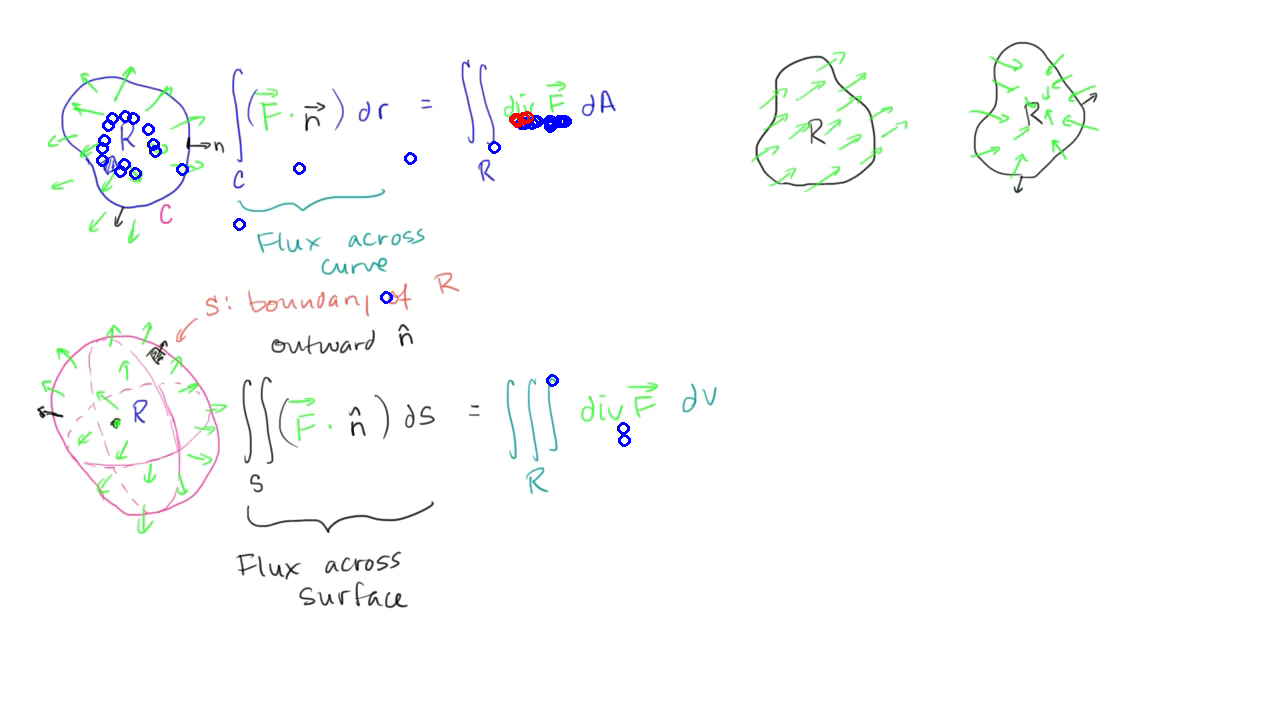 R
n
C
∫_C (F⃗ · n⃗) dr = ∬_R div F⃗ dA
Flux across
curve
S: boundary of R
outward n̂
R
∬_S (F⃗ · n̂) dS = ∭_R div F⃗ dv
Flux across
surface
R
R